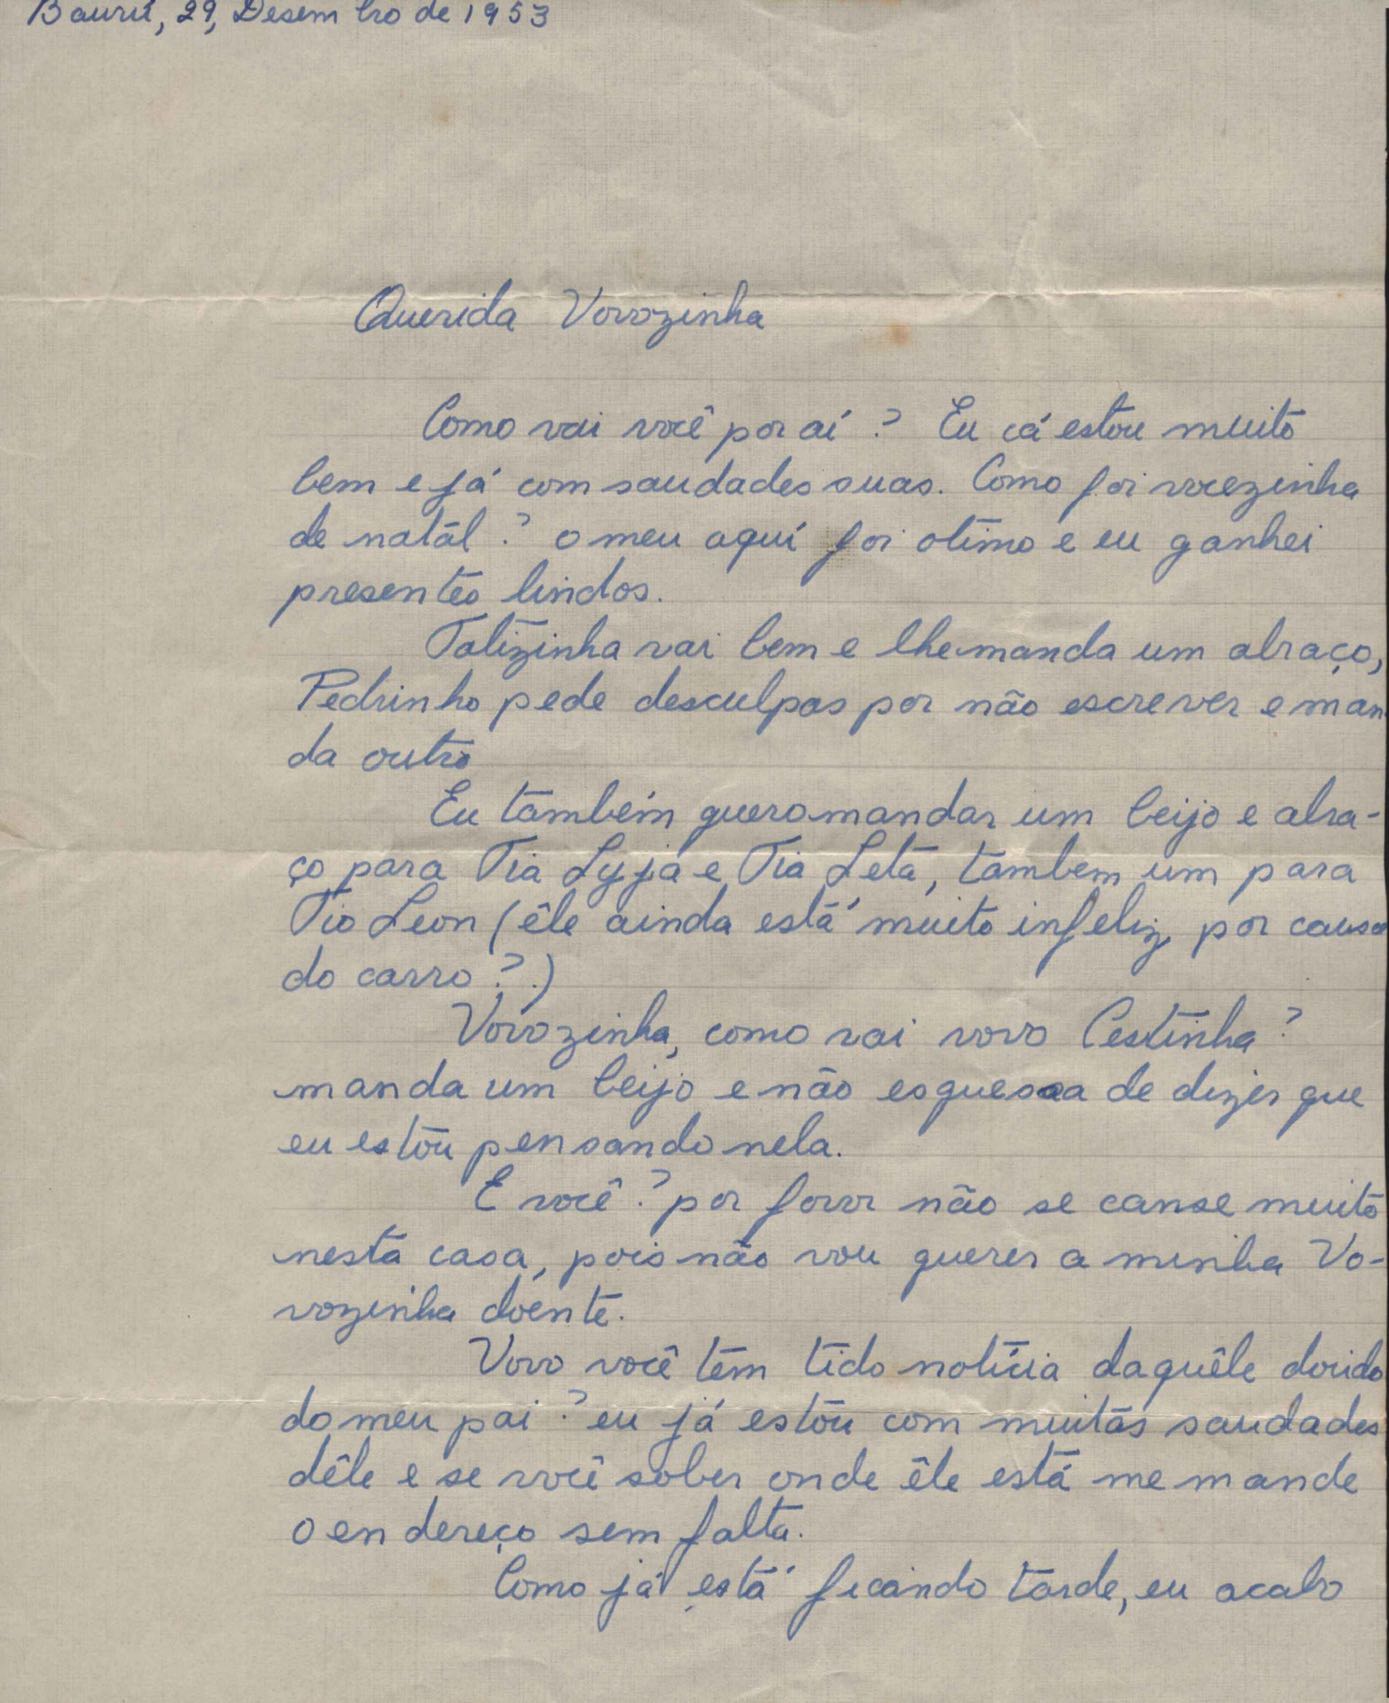 Baurú, 29, Desembro de 1953
Querida Vovozinha
Como vai você por aí? Eu cá estou muito
bem e já com saudades suas. Como foi vocezinha
de natál? o meu aquí foi otimo e eu ganhei
presentes lindos.
Tatizinha vai bem e lhe manda um abraço,
Pedrinho pede desculpas por não escrever e man
da outro
Eu também quero mandar um beijo e abra-
ço para Tia Lyja e Tia Leta, tambem um para
Tio Leon (êle ainda está muito infeliz por causa
do carro?.)
Vovozinha, como vai vovo Cestinha?
manda um beijo e não esquesa de dizer que
eu estou pensando nela.
E você? por favor não se canse muito
nesta casa, pois não vou querer a minha Vo-
vozinha doente.
Vovo você tem tido notícia daquêle doido
do meu pai? eu já estou com muitas saudades
dêle e se você saber onde êle está me mande
o endereço sem falta.
Como já está ficando tarde, eu acabo